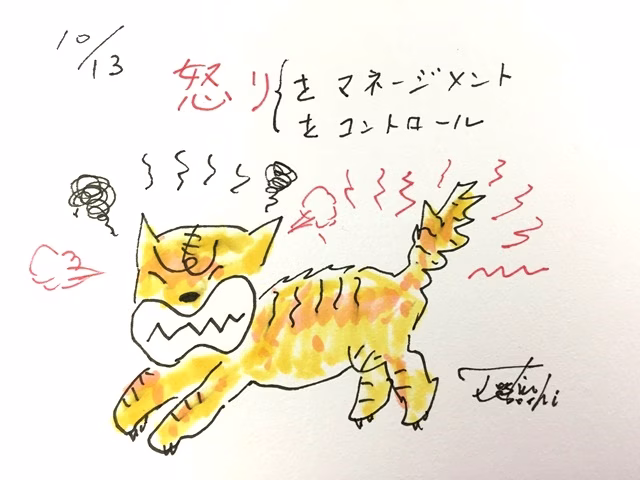 10/13
怒り{をマネージメント
をコントロール